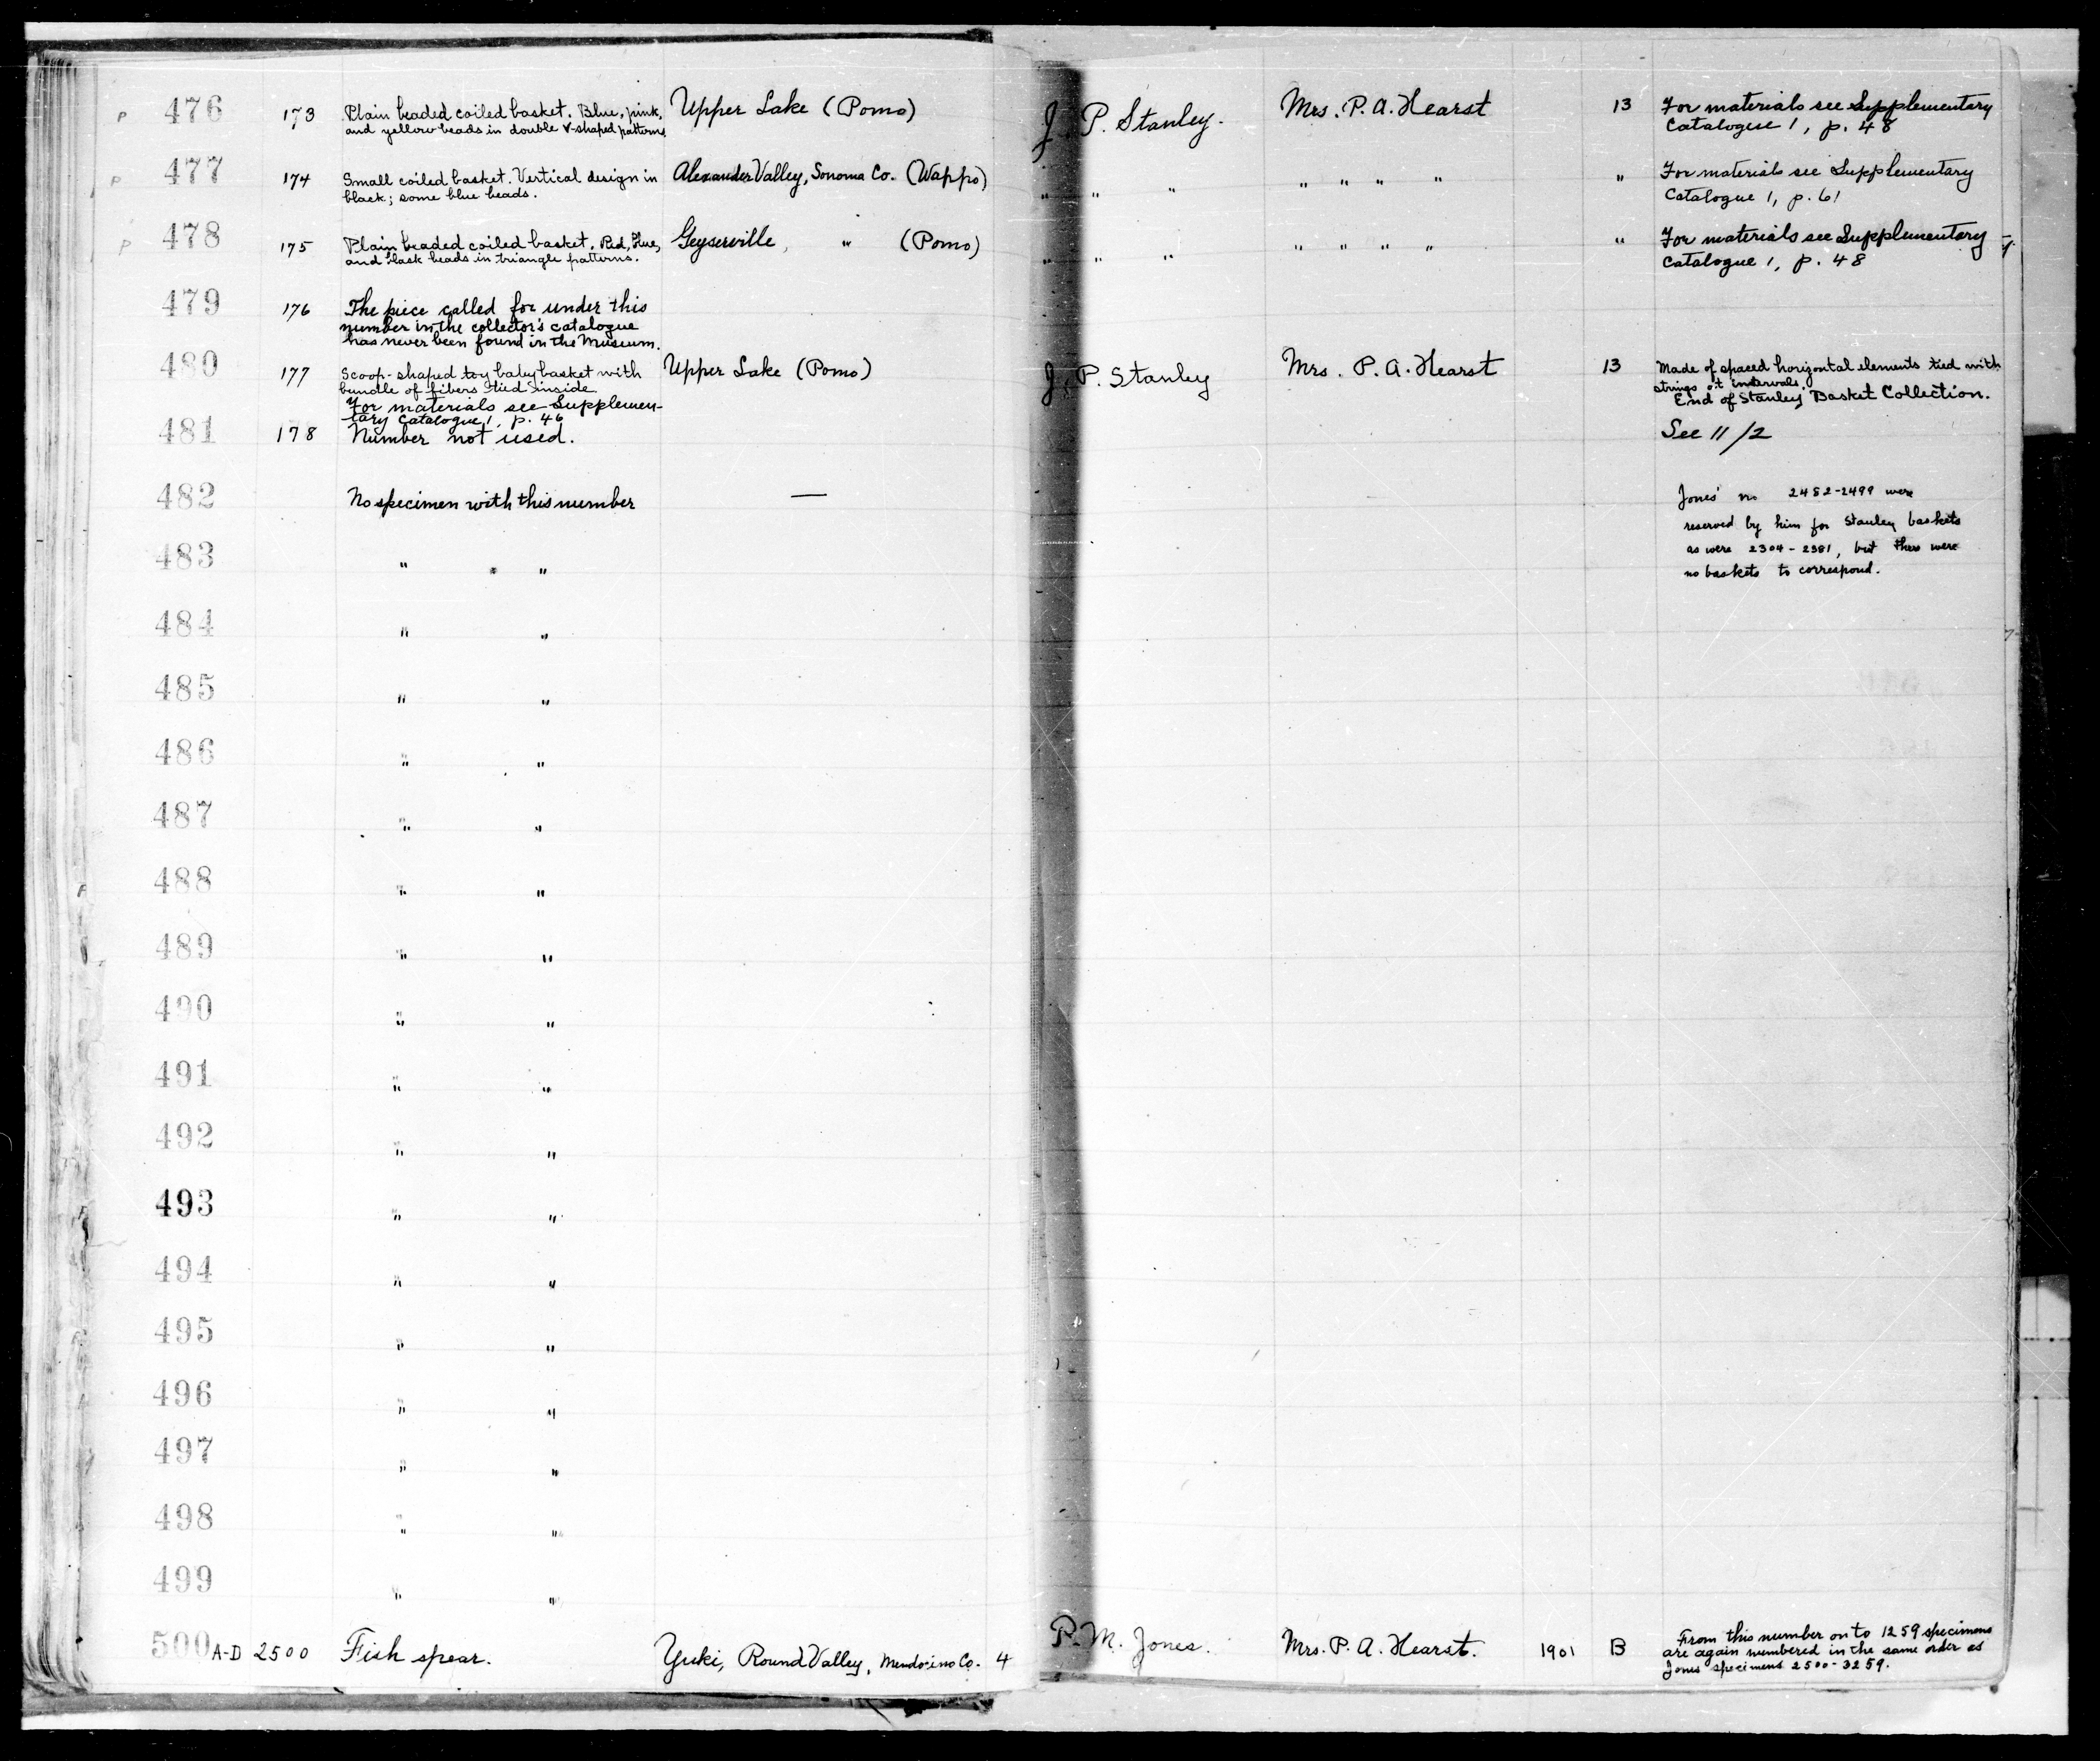 P 476 173 Plain beaded coiled basket. Blue, pink, Upper Lake (Pomo) J. P. Stanley. Mrs. P. A. Hearst 13 For materials see Supplementary
and yellow beads in double V-shaped patterns Catalogue 1, p. 48
P 477 174 Small coiled basket. Vertical design in Alexander Valley, Sonoma Co. (Wappo) " " " " " " " " For materials see Supplementary
black; some blue beads. Catalogue 1, p. 61
P 478 175 Plain beaded coiled basket. Red, blue, Geyserville, " (Pomo) " " " " " " " " For materials see Supplementary
and black beads in triangle patterns. Catalogue 1, p. 48
479 176 The piece called for under this
number in the collector's catalogue
has never been found in the Museum.
480 177 Scoop-shaped toy baby basket with Upper Lake (Pomo) J. P. Stanley Mrs. P. A. Hearst 13 Made of spaced horizontal elements tied with
bundle of fibers tied inside strings at intervals.
For materials see Supplemen- End of Stanley Basket Collection.
tary Catalogue 1, p. 46
481 178 Number not used. See 11/2
482 No specimen with this number — Jones' no 2482-2499 were
reserved by him for Stanley baskets
483 " " " as were 2304-2381, but there were
no baskets to correspond.
484 " "
485 " "
486 " "
487 " "
488 " "
489 " "
490 " "
491 " "
492 " "
493 " "
494 " "
495 " "
496 " "
497 " "
498 " "
499 " "
500 A-D 2500 Fish spear. Yuki, Round Valley, Mendocino Co. 4 P. M. Jones. Mrs. P. A. Hearst. 1901 B From this number on to 1259 specimens
are again numbered in the same order as
Jones' specimens 2500-3259.